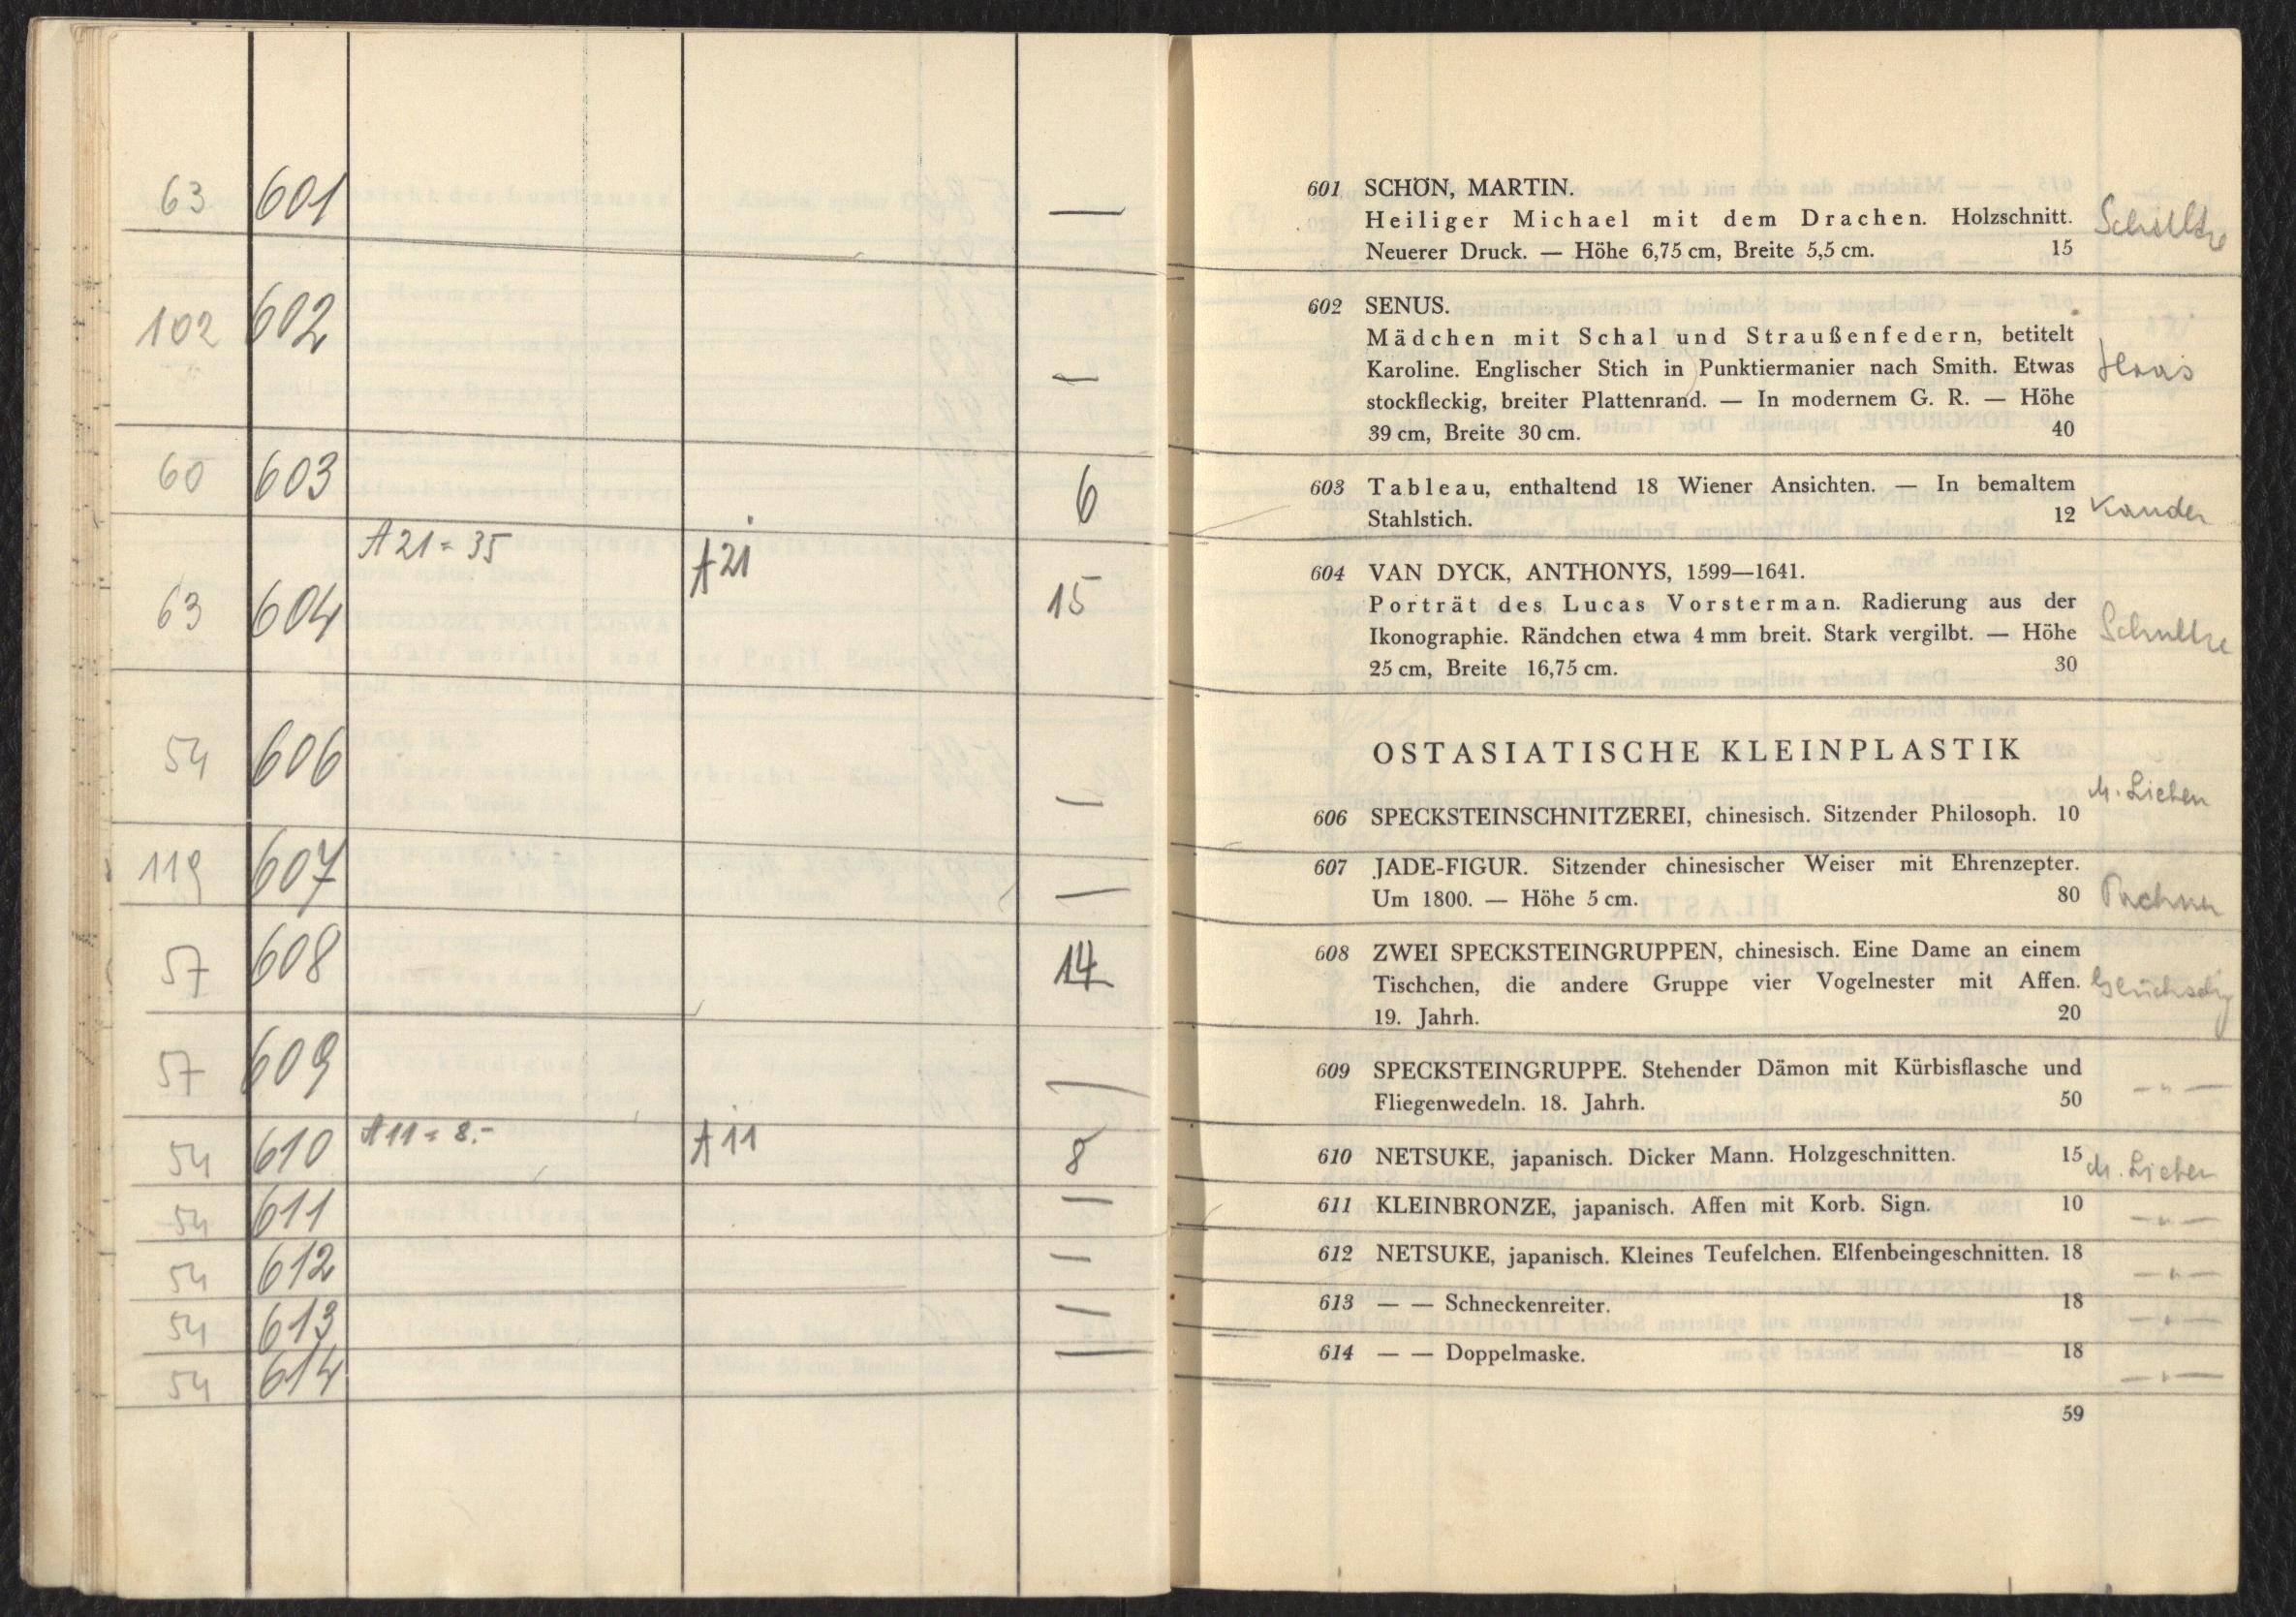 63 601 —
102 602 —
60 603 6
A 21 = 35 A 21
63 604 15
54 606 —
119 607 —
57 608 14
57 609 —
54 610 A 11 = 8.- A 11 8
54 611 —
54 612 —
54 613 —
54 614 —
601 SCHÖN, MARTIN.
Heiliger Michael mit dem Drachen. Holzschnitt.
Neuerer Druck. — Höhe 6,75 cm, Breite 5,5 cm. 15
602 SENUS.
Mädchen mit Schal und Straußenfedern, betitelt
Karoline. Englischer Stich in Punktiermanier nach Smith. Etwas Haas
stockfleckig, breiter Plattenrand. — In modernem G. R. — Höhe
39 cm, Breite 30 cm. 40
603 Tableau, enthaltend 18 Wiener Ansichten. — In bemaltem
Stahlstich. 12
604 VAN DYCK, ANTHONYS, 1599—1641.
Porträt des Lucas Vorsterman. Radierung aus der
Ikonographie. Rändchen etwa 4 mm breit. Stark vergilbt. — Höhe Schultze
25 cm, Breite 16,75 cm. 30
OSTASIATISCHE KLEINPLASTIK
M. Lieben
606 SPECKSTEINSCHNITZEREI, chinesisch. Sitzender Philosoph. 10
607 JADE-FIGUR. Sitzender chinesischer Weiser mit Ehrenzepter.
Um 1800. — Höhe 5 cm. 80
608 ZWEI SPECKSTEINGRUPPEN, chinesisch. Eine Dame an einem
Tischchen, die andere Gruppe vier Vogelnester mit Affen.
19. Jahrh. 20
609 SPECKSTEINGRUPPE. Stehender Dämon mit Kürbisflasche und
Fliegenwedeln. 18. Jahrh. 50 — " —
610 NETSUKE, japanisch. Dicker Mann. Holzgeschnitten. 15 M. Lieben
611 KLEINBRONZE, japanisch. Affen mit Korb. Sign. 10 — " —
612 NETSUKE, japanisch. Kleines Teufelchen. Elfenbeingeschnitten. 18 — " —
613 — — Schneckenreiter. 18 — " —
614 — — Doppelmaske. 18 — " —
59